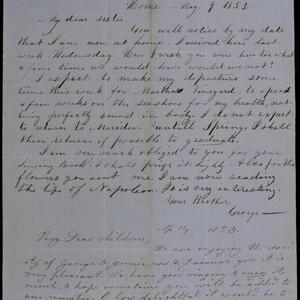 Home May. 9 1853.
My dear sister
You will notice by my date
that I am now at home. I arrived here last
week Wednesday. How I wish you were here too what
a fine time we would have would we not?
I expect to make my departure some
time this week for Marthas Vineyard, to spend
a few weeks on the seashore for my health, not
being perfectly sound in body. I do not expect
to return to Meriden untill Spring. I shall
then return if possible to graduate.
I am very much obliged to you for your
singing Book. I shall prize it highly. Also for the
flowers you sent me I am now reading
the life of Napoleon. It is very interesting.
Your Brother,
George
1853.
Very Dear children,
We are enjoying the
of George & now & I assure you it is
very pleasant. We have good singing & enjoy it
much, & hope sometime you will be added to
our number. how delightful it would be